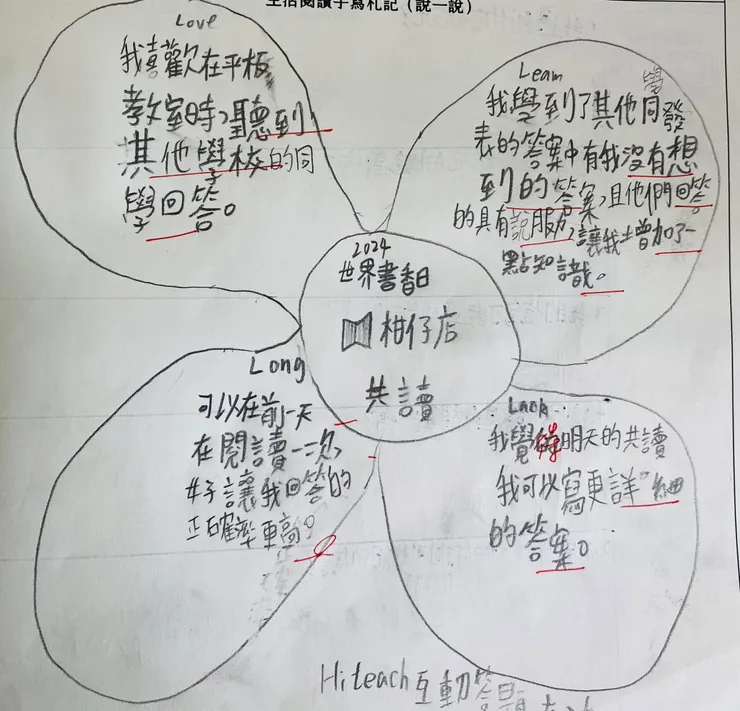 生活閱讀手寫札記（說一說）
Love
我喜歡在平板
教室時，聽到
其他學校的同
學回答。
Learn
我學到了其他同學發
表的答案中有我沒有想
到的答案，且他們回答
的具有說服力，讓我土增加了一
點知識。
2024
世界書香日
柑仔店
共讀
Long
可以在前一天
在閱讀一次，
好讓我回答的
正確率更高。
Lack
我覺得明天的共讀
我可以寫更詳細
的答案。
Hiteach互動答題